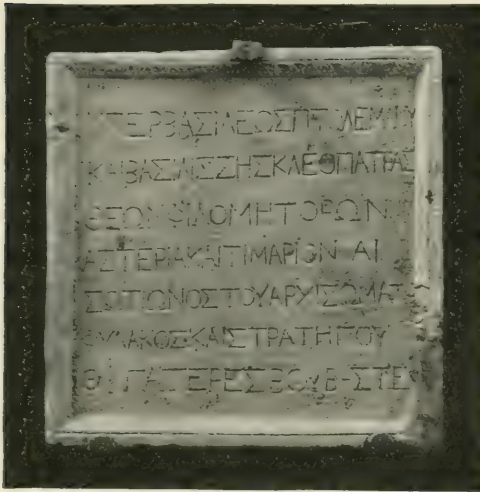 ΥΠΕΡΒΑΣΙΛΕΩΣΠΤΟΛΕΜΑΙΟΥ
ΚΑΙΒΑΣΙΛΙΣΣΗΣΚΛΕΟΠΑΤΡΑΣ
ΘΕΩΝΦΙΛΟΜΗΤΟΡΩΝ
ΑΣΤΕΡΙΑΚΑΙΤΙΜΑΡΙΟΝ ΑΙ
ΣΩΤΙΩΝΟΣΤΟΥΑΡΧΙΣΩΜΑΤ
ΟΦΥΛΑΚΟΣΚΑΙΣΤΡΑΤΗΓΟΥ
ΘΥΓΑΤΕΡΕΣΒΟΥΒΑΣΤΕΙ